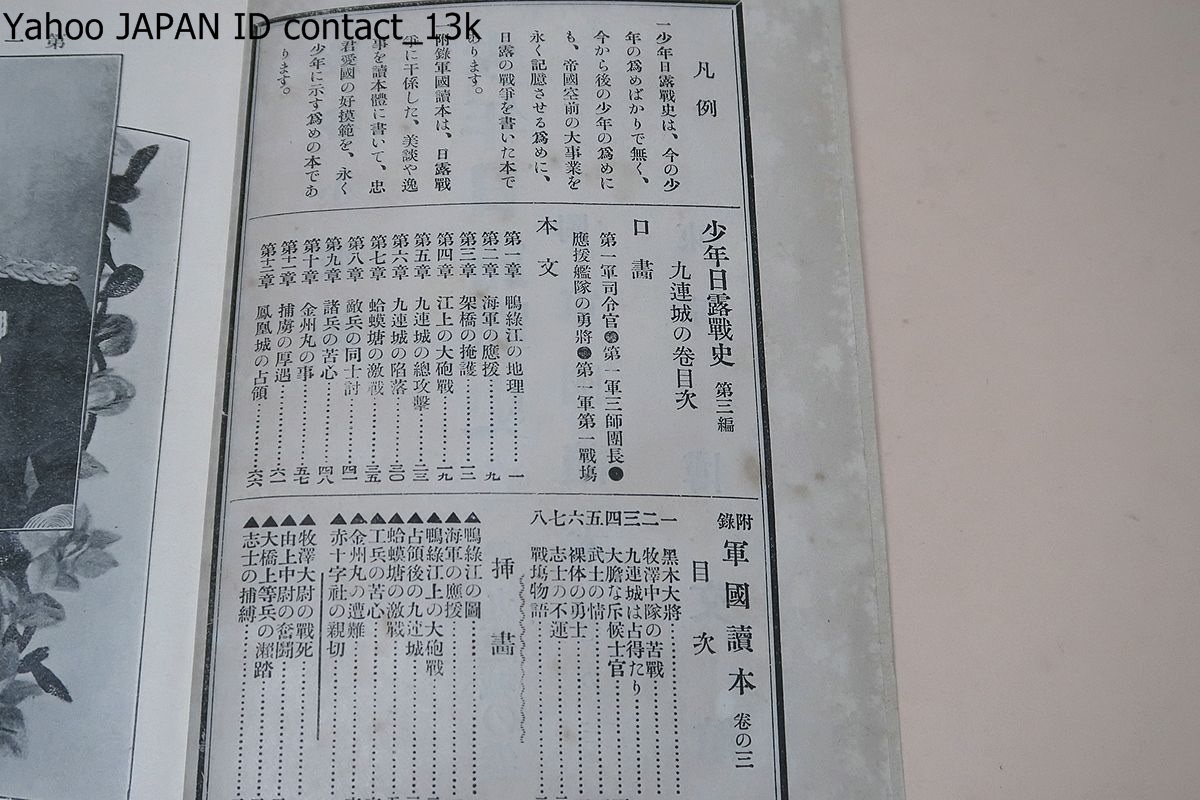 Yahoo JAPAN ID contact_13k
凡例
一少年日露戰史は、今の少
年の爲めばかりで無く、
今から後の少年の爲めに
も、帝國空前の大事業を
永く記臆させる爲めに、
日露の戰爭を書いた本で
あります。
一附錄軍國讀本は、日露戰
爭に干係した、美談や逸
事を讀本體に書いて、忠
君愛國の好摸範を、永く
少年に示す爲めの本であ
ります。
少年日露戰史 第三編
九連城の卷目次
口畫
第一軍司令官●第一軍三師團長●
應援艦隊の勇將●第一軍第一戰塲
本文
第一章 鴨綠江の地理 一
第二章 海軍の應援 九
第三章 架橋の掩護 一二
第四章 江上の大砲戰 一九
第五章 九連城の總攻擊 二三
第六章 九連城の陷落 三〇
第七章 蛤蟆塘の激戰 三五
第八章 敵兵の同士討 四一
第九章 諸兵の苦心 四八
第十章 金州丸の事 五七
第十一章 捕虜の厚遇 六一
第十二章 鳳凰城の占領 六六
附錄 軍國讀本 卷の三
目次
一 黑木大將
二 牧澤中隊の苦戰
三 九連城は占得たり
四 大膽な斥候士官
五 武士の情
六 裸体の勇士
七 志士の不運
八 戰塲物語
挿畫
▲鴨綠江の圖
▲海軍の應援
▲鴨綠江上の大砲戰
▲占領後の九連城
▲蛤蟆塘の激戰
▲工兵の苦心
▲金州丸の遭難
▲赤十字社の親切
▲牧澤大尉の戰死
▲由上中尉の奮鬪
▲大橋上等兵の瀨踏
▲志士の捕縛